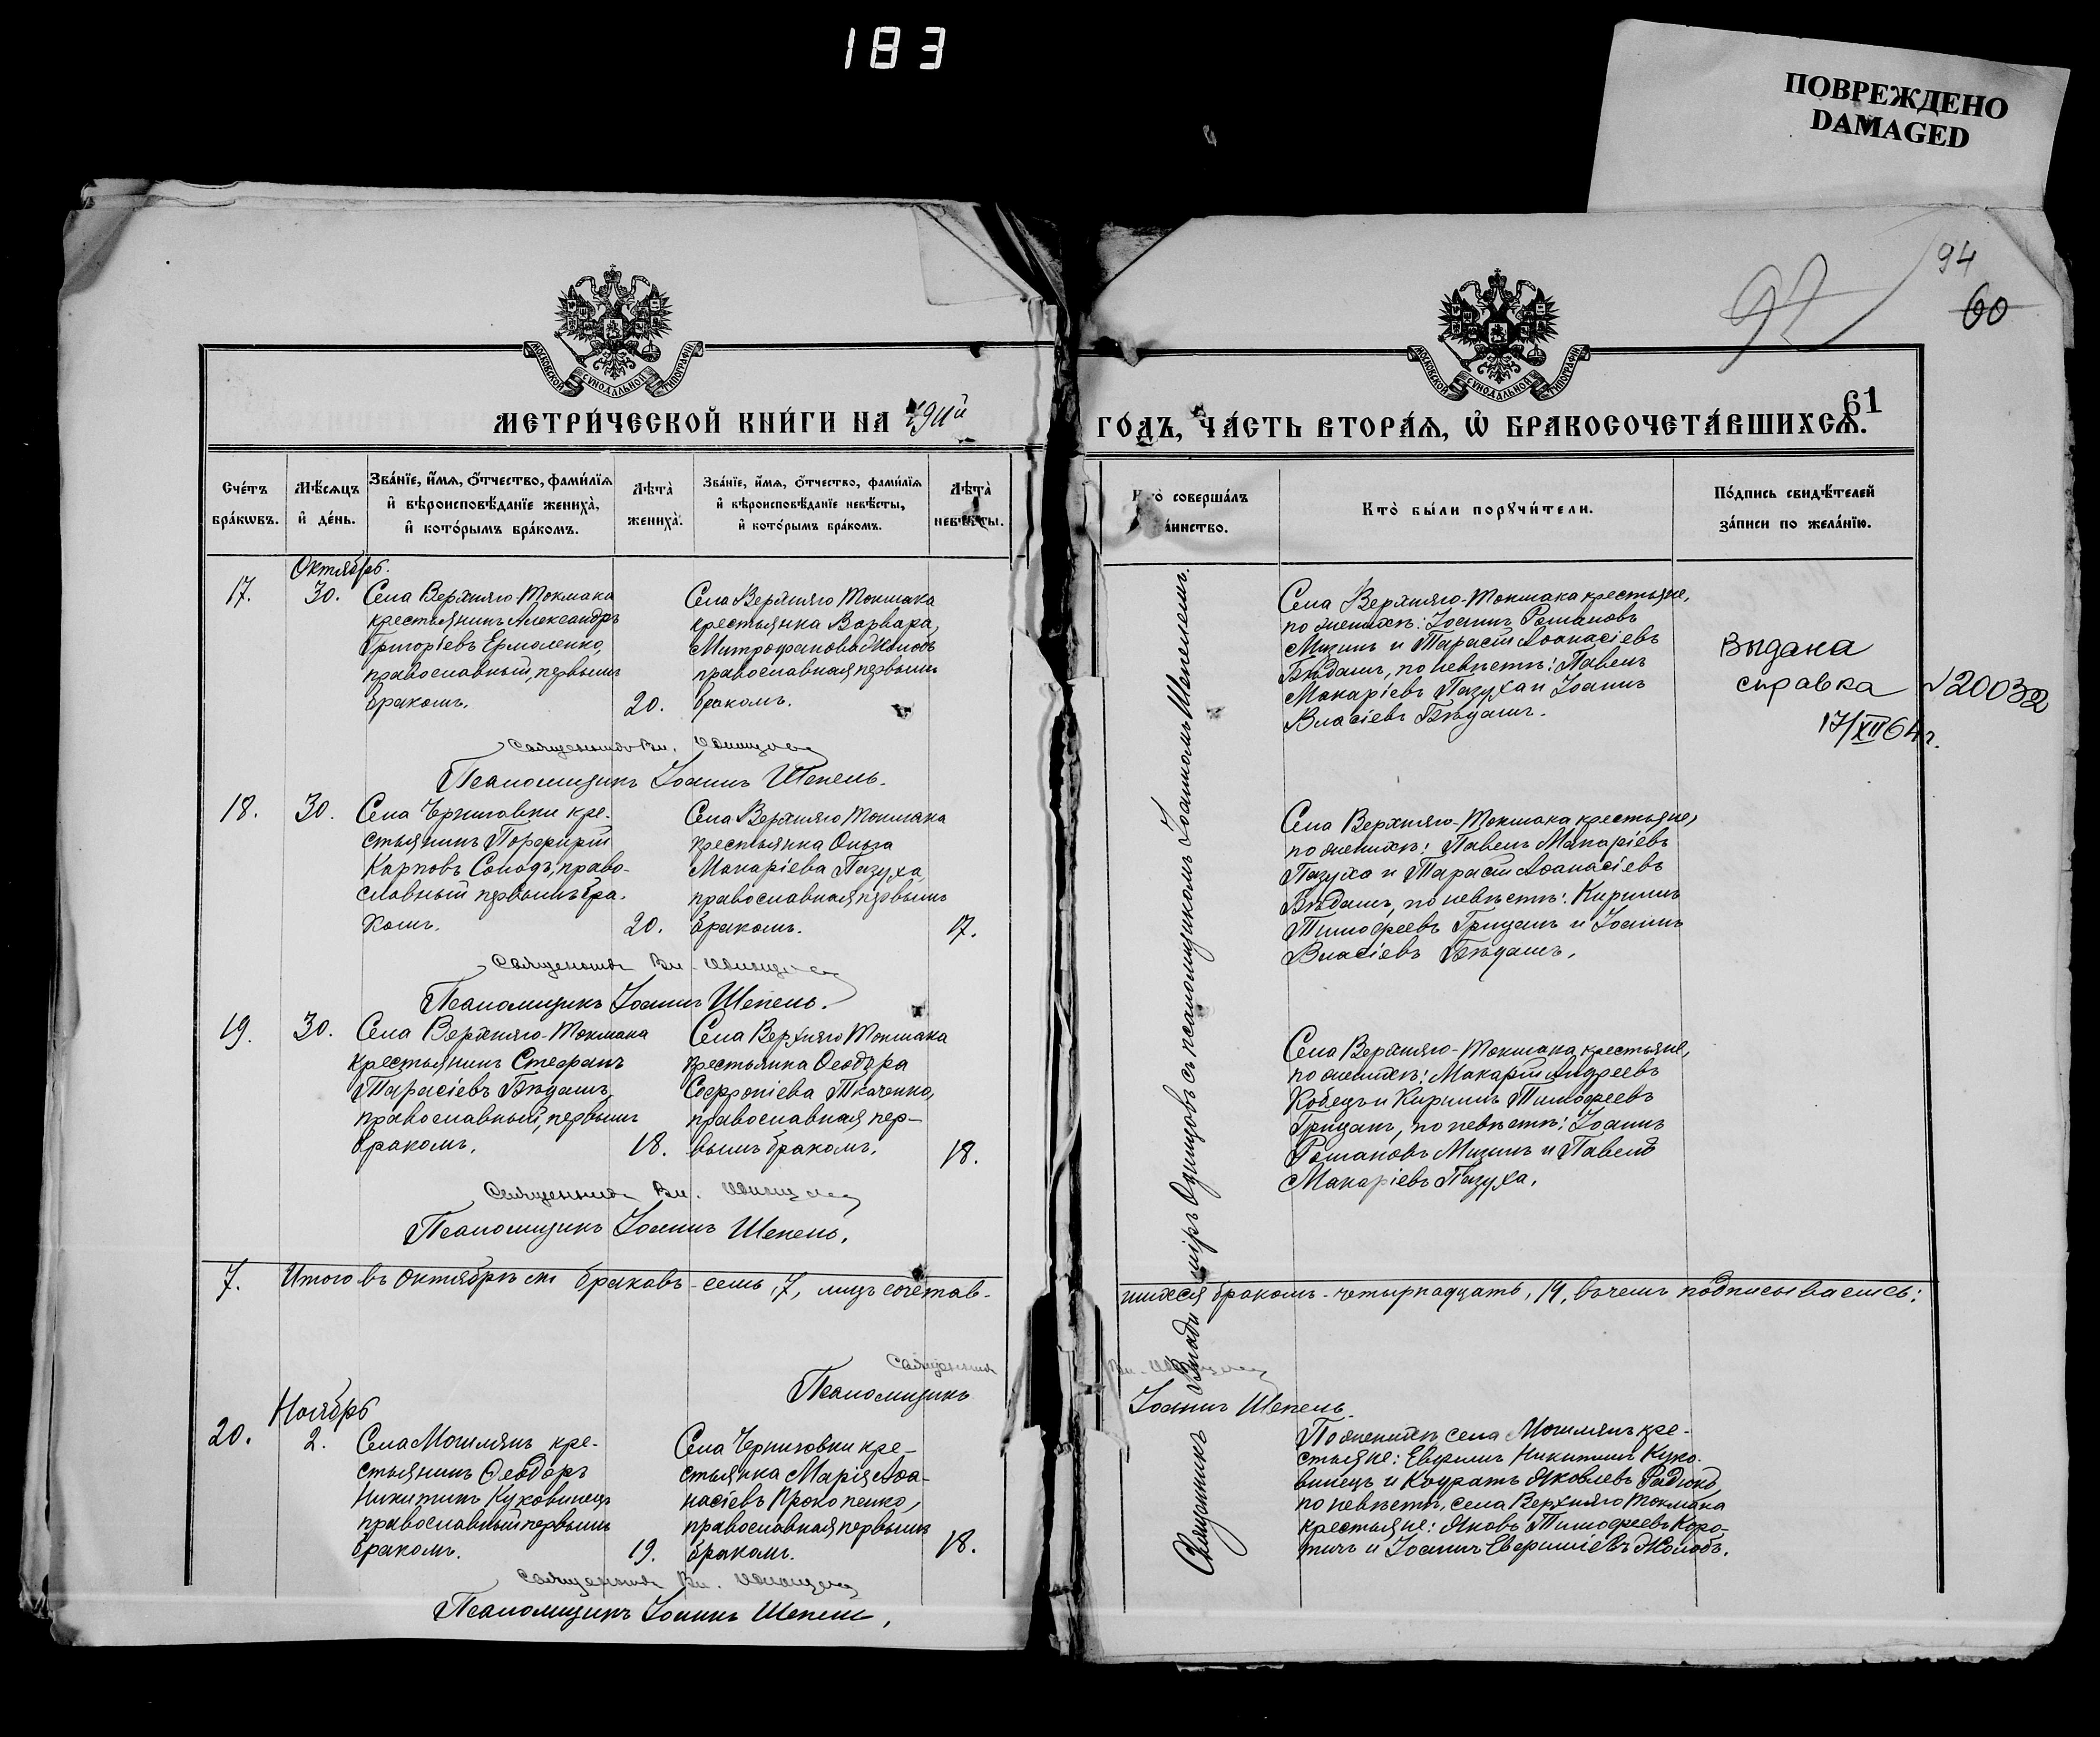 183
ПОВРЕЖДЕНО
DAMAGED
94
92
60
61
МОСКОВСКОЙ СѴНОДАЛЬНОЙ ТИПОГРАФІИ
МОСКОВСКОЙ СѴНОДАЛЬНОЙ ТИПОГРАФІИ
МЕТРИ́ЧЕСКОЙ КНИ́ГИ НА 1911й ГО́ДЪ, ЧА́СТЬ ВТОРА́Я, Ѡ҆ БРАКОСОЧЕТА́ВШИХСѦ.
Сче́тъ бра́кѡвъ.
Мѣ́сѧцъ и҆ де́нь.
Зва́нїе, и҆́мѧ, ѻ҆́тчество, фами́лїѧ и҆ вѣроисповѣ́данїе жениха̀, и҆ кото́рымъ бра́комъ.
Лѣта̀ жениха̀.
Зва́нїе, и҆́мѧ, ѻ҆́тчество, фами́лїѧ и҆ вѣроисповѣ́данїе невѣ́сты, и҆ кото́рымъ бра́комъ.
Лѣта̀ невѣ́сты.
совершалъ
Кто̀ бы́ли порꙋчи́тели.
По́дпись свидѣ́телей за́писи по жела́нїю.
Октябрь.
17.
30.
Села Верхняго-Токмака
крестьянинъ Александръ
Григоріевъ Ермоленко,
православный, первымъ
бракомъ.
20.
Села Верхняго Токмака
крестьянка Варвара
Митрофанова Жолобъ
православная первымъ
бракомъ.
Села Верхняго-Токмака крестьяне,
по женихѣ: Іоаннъ Романовъ
Мизинъ и Тарасій Аѳанасіевъ
Бѣдашъ, по невѣстѣ: Павелъ
Макаріевъ Пазуха и Іоаннъ
Власіевъ Бѣдашъ.
Выдана
справка №20032
17/XII 64 г.
Псаломщикъ Іоаннъ Шепель.
18.
30.
Села Черниговки кре-
стьянинъ Порфирій
Карповъ Солодъ, право-
славный первымъ бра-
комъ.
20.
Села Верхняго Токмака
крестьянка Ольга
Макаріева Пазуха,
православная первымъ
бракомъ.
17.
Села Верхняго-Токмака крестьяне,
по женихѣ: Павелъ Макаріевъ
Пазуха и Тарасій Аѳанасіевъ
Бѣдашъ, по невѣстѣ: Кириллъ
Тимоѳеевъ Грицанъ и Іоаннъ
Власіевъ Бѣдашъ.
Псаломщикъ Іоаннъ Шепель.
19.
30.
Села Верхняго-Токмака
крестьянинъ Стефанъ
Тарасіевъ Бѣдашъ,
православный, первымъ
бракомъ.
18.
Села Верхняго Токмака
крестьянка Ѳеодора
Софроніева Ткаченко,
православная пер-
вымъ бракомъ.
18.
Села Верхняго-Токмака крестьяне,
по женихѣ: Макарій Андреевъ
Кобецъ и Кириллъ Тимоѳеевъ
Грицанъ, по невѣстѣ: Іоаннъ
Романовъ Мизинъ и Павелъ
Макаріевъ Пазуха.
Псаломщикъ Іоаннъ Шепель.
7. Итого въ Октябрѣ м браковъ - семь, 7, лицъ сочетав-
шихся бракомъ - четырнадцать, 14, въ чемъ подписываемся:
Священникъ
Псаломщикъ Іоаннъ Шепель.
Ноябрь
20.
2.
Села Могилянъ кре-
стьянинъ Ѳеодоръ
Никитинъ Куковинецъ
православный первымъ
бракомъ.
19.
Села Черниговки кре-
стьянка Марія Аѳа-
насіевъ Прокопенко,
православная первымъ
бракомъ.
18.
По женихѣ села Могилянъ кре-
стьяне: Евфимъ Никитинъ Куко-
винецъ и Кодратъ Яковлевъ Радіонъ,
по невѣстѣ, села Верхняго Токмака
крестьяне: Яковъ Тимоѳеевъ Коро-
тичъ и Іоаннъ Евфиміевъ Жолобъ.
Псаломщикъ Іоаннъ Шепель.
Священникъ Владиміръ Одинцовъ съ псаломщикомъ Іоанномъ Шепелемъ.